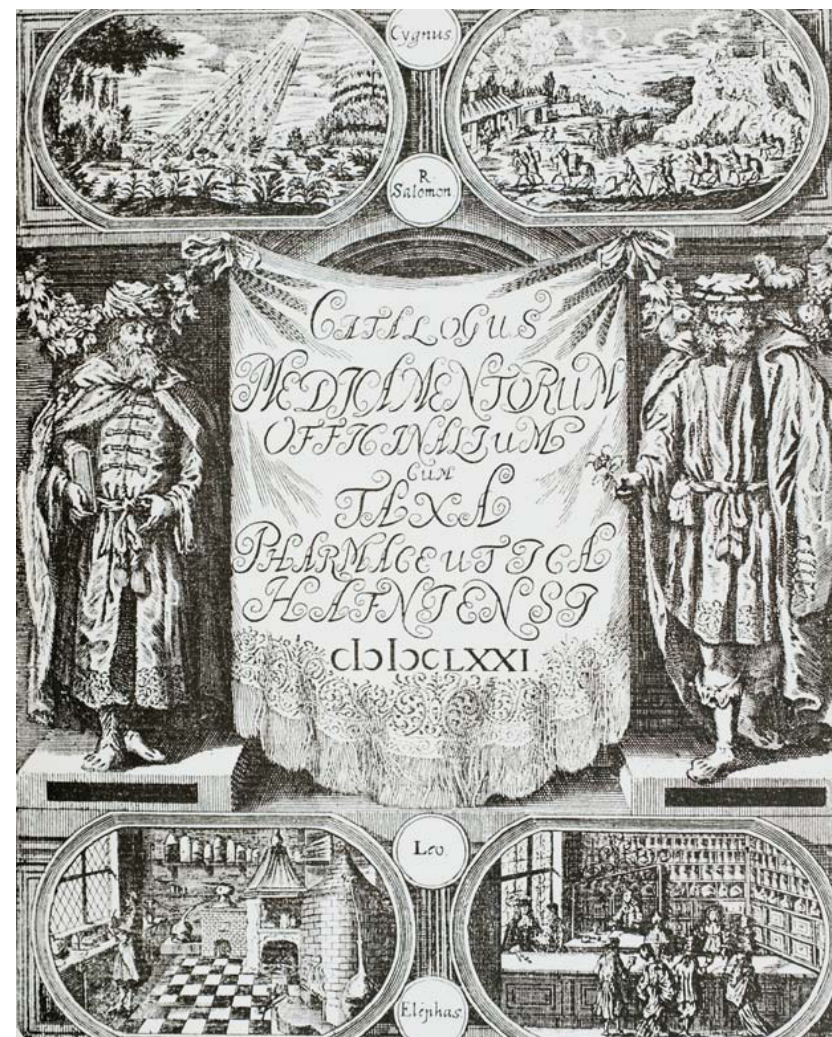 Cygnus.
R.
Salomon.
CATALOGUS
MEDICAMENTORUM
OFFICINALIUM
CUM
TAXA
PHARMACEUTICA
HAFNIENSI
cIↄIↄcLXXI
Leo.
Elephas